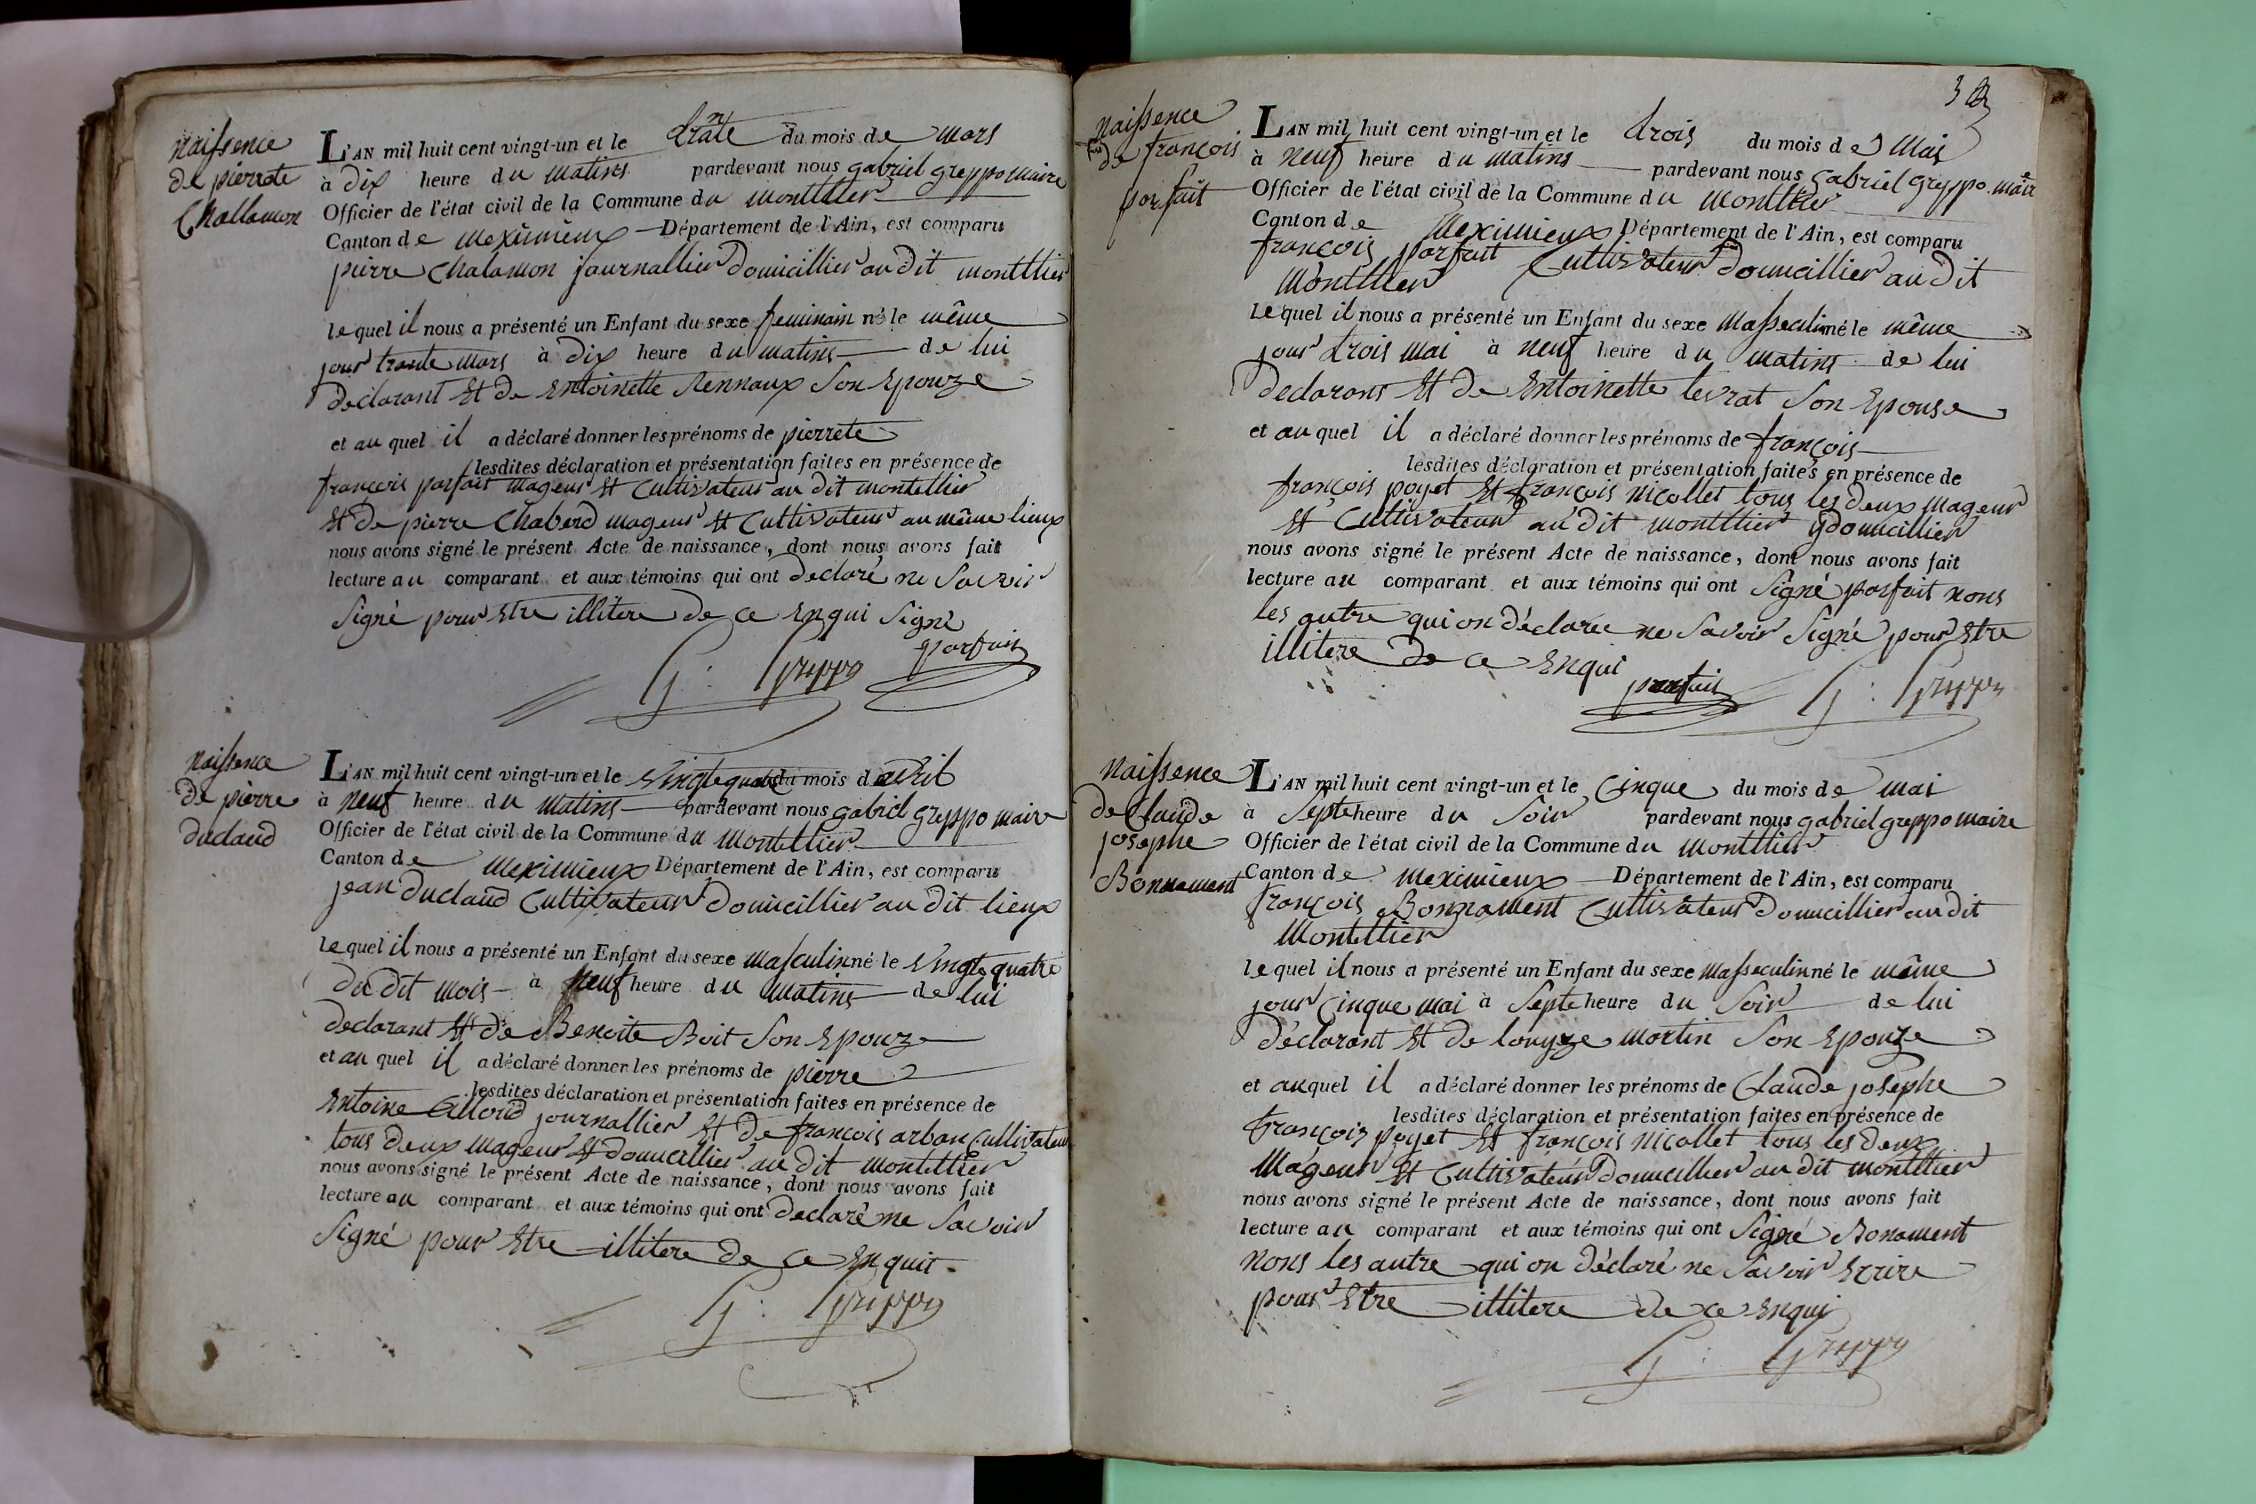 naissence
de pierrete
Challamon
L'AN mil huit cent vingt-un et le trante du mois de mars
à dix heure du matins pardevant nous gabriel greppo maire
Officier de l'état civil de la Commune du montllier
Canton de meximieux Département de l'Ain, est comparu
pierre Chalamon journallier domicillier au dit montllier
le quel il nous a présenté un Enfant du sexe feminain né le même
jour trante mars à dix heure du matins de lui
declarant Et de Entoinette Rennaux Son Epouze
et au quel il a déclaré donner les prénoms de pierrete
lesdites déclaration et présentation faites en présence de
françois parfait mageur Et Cultivateur au dit montellier
Et de pierre Chaberd mageur Et Cultivateur au même lieux
nous avons signé le présent Acte de naissance, dont nous avons fait
lecture au comparant et aux témoins qui ont declaré ne Savoir
Signé pour Etre illitere de ce Enqui Signé
G: Greppo parfait
naissence
de pierre
duclaud
L'AN mil huit cent vingt-un et le Vingtequatre du mois d avril
à neuf heure du matins pardevant nous gabriel greppo maire
Officier de l'état civil de la Commune du montellier
Canton de meximieux Département de l'Ain, est comparu
jean duclaud Cultivateur domicillier au dit lieux
le quel il nous a présenté un Enfant du sexe masculin né le Vingte quatre
du dit mois à neuf heure du matins de lui
declarant Et de Benoite Boit Son Epouze
et au quel il a déclaré donner les prénoms de pierre
lesdites déclaration et présentation faites en présence de
Entoine journallier Et de françois arban Cultivateur
tous deux mageur Et domicillier au dit montellier
nous avons signé le présent Acte de naissance, dont nous avons fait
lecture au comparant et aux témoins qui ont declaré ne Savoir
Signé pour Etre illitere de ce En quit.
G: Greppo
naissence
de françois
parfait
L'AN mil huit cent vingt-un et le trois du mois de Mai
à neuf heure du matins pardevant nous gabriel greppo. maire
Officier de l'état civil de la Commune du montllier
Canton de Meximieux Département de l'Ain, est comparu
françois parfait Cultivateur domicillier au dit
Montllier
le quel il nous a présenté un Enfant du sexe Masseculin né le même
jour trois mai à neuf heure du matins de lui
declarans Et de Entoinette levrat Son Epouse
et au quel il a déclaré donner les prénoms de françois
lesdites déclaration et présentation faites en présence de
françois poyet Et françois nicollet tous les deux mageur
Et Cultivateur au dit montllier y domicillier
nous avons signé le présent Acte de naissance, dont nous avons fait
lecture au comparant et aux témoins qui ont Signé parfait nons
les autre qui on déclarée ne Savoir Signé pour Etre
illitere de ce Enqui
parfait G: Greppo
naissence
de Claude
josephe
Bonnament
L'AN mil huit cent vingt-un et le Cinque du mois de mai
à Septe heure du Soir pardevant nous gabriel greppo maire
Officier de l'état civil de la Commune du montllier
Canton de meximieux Département de l'Ain, est comparu
françois Bonnament Cultivateur domicillier au dit
Montellier
le quel il nous a présenté un Enfant du sexe masseculin né le même
jour Cinque mai à Septe heure du Soir de lui
déclarant Et de louyze martin Son Epouze
et au quel il a déclaré donner les prénoms de Claude josephe
lesdites déclaration et présentation faites en présence de
françois poyet Et françois nicollet tous les deux
Mageur Et Cultivateur domicillier au dit montllier
nous avons signé le présent Acte de naissance, dont nous avons fait
lecture au comparant et aux témoins qui ont Signé Bonament
nons les autre qui on déclaré ne Savoir Ecrire
pour Etre illitere de ce Enqui
G: Greppo